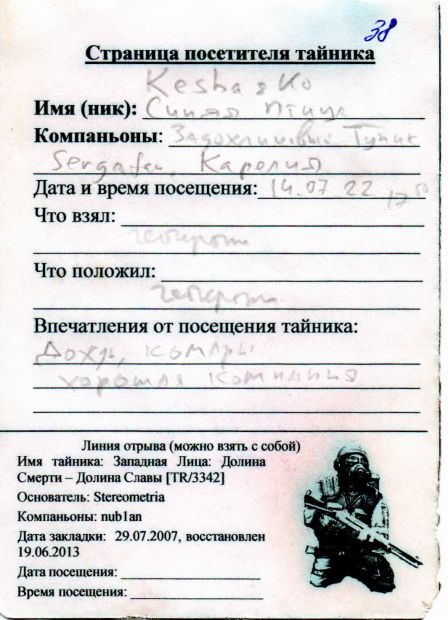 38
Страница посетителя тайника
Kesha & Ko
Имя (ник): Синяя птица
Компаньоны: Задохликовый Тупик
Карелия
Дата и время посещения: 14.07 22 17 50
Что взял:
Что положил:
Впечатления от посещения тайника:
Дождь, комары
хорошая компания
Линия отрыва (можно взять с собой)
Имя тайника: Западная Лица: Долина
Смерти – Долина Славы [TR/3342]
Основатель: Stereometria
Компаньоны: nub1an
Дата закладки: 29.07.2007, восстановлен
19.06.2013
Дата посещения:
Время посещения: